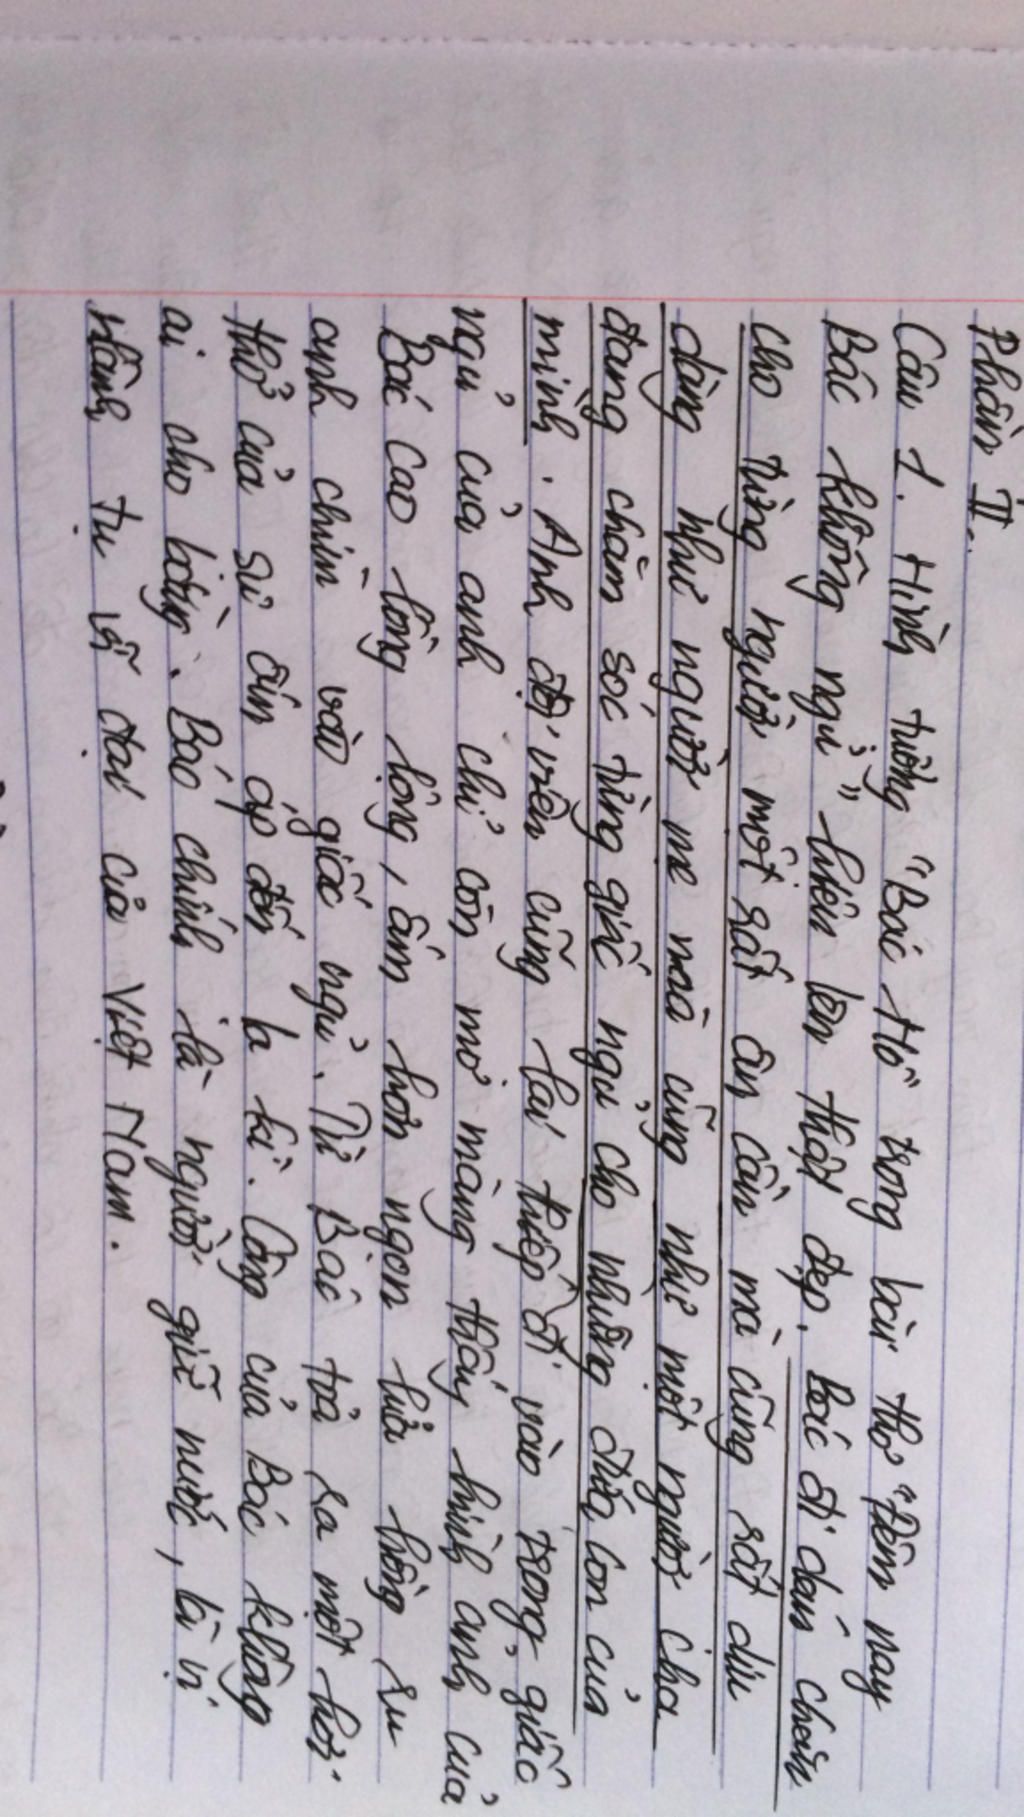 Phần II.
Câu 1. Hình tượng "Bác Hồ" trong bài thơ "Đêm nay
Bác không ngủ" hiện lên thật đẹp. Bác đi dém chăn
cho từng người một rất ân cần mà cũng rất dịu
dàng như người mẹ mà cũng như một người cha
đang chăm sóc từng giấc ngủ cho những đứa con của
mình. Anh đội viên cũng lại thiếp đi vào trong giấc
ngủ của anh chỉ còn mơ màng thấy hình ảnh của
Bác cao lồng lộng, ấm hơn ngọn lửa hồng ru
anh chìm vào giấc ngủ. Từ Bác tỏa ra một hơi
thở của sự ấm áp đến lạ kì. Công của Bác không
ai cho bằng. Bác chính là người giữ nước, là vị
lãnh tụ vĩ đại của Việt Nam.